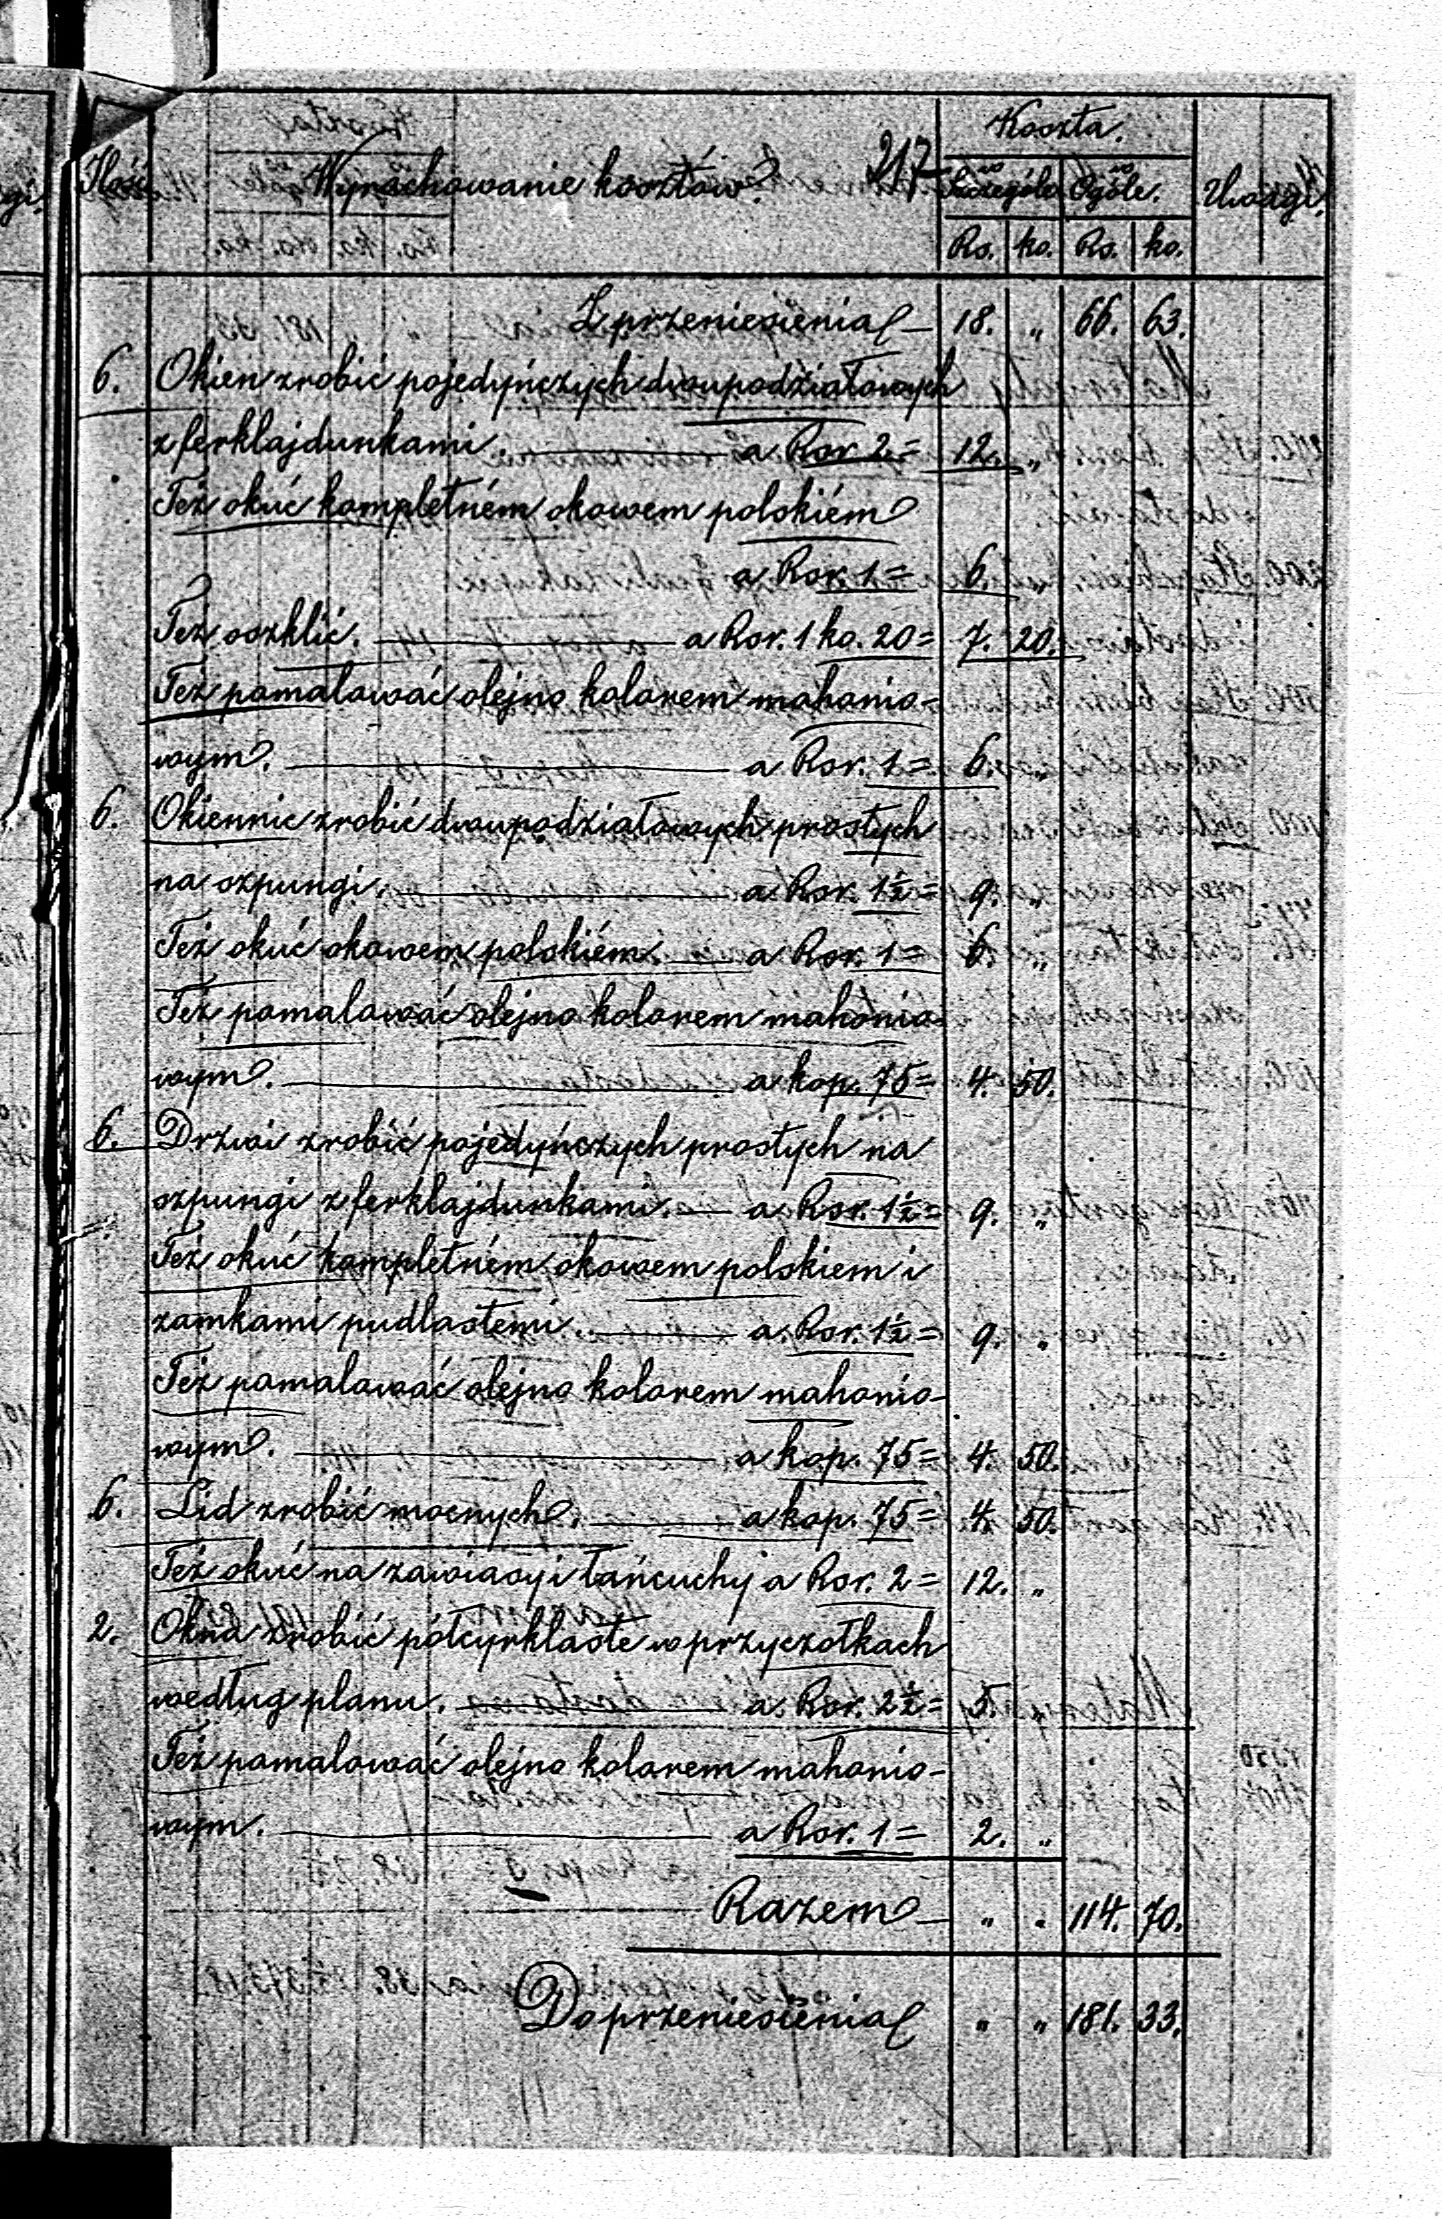 217
Koszta.
Ilość Wyrachowanie kosztów. w Szczególe w Ogóle. Uwagi.
Rs. ko. Rs. ko.
Z przeniesienia — 18. „ 66. 63.
6. Okien zrobić pojedyńczych dwupodziałowych
z ferklajdunkami. — a Rsr. 2 = 12. „
Też okuć kompletném okowem polskiém
a Rsr. 1 = 6. „
Też oszklić. — a Rsr. 1 ko. 20 = 7. 20.
Też pomalować olejno kolorem mahonio-
wym. — a Rsr. 1 = 6. „
6. Okiennic zrobić dwupodziałowych prostych
na szpungi. — a Rsr. 1½ = 9. „
Też okuć okowem polskiém. — a Rsr. 1 = 6. „
Też pomalować olejno kolorem mahonio-
wym. — a kop. 75 = 4. 50.
6. Drzwi zrobić pojedyńczych prostych na
szpungi z ferklajdunkami. — a Rsr. 1½ = 9. „
Też okuć kompletném okowem polskiem i
zamkami pudlastemi. — a Rsr. 1½ = 9. „
Też pomalować olejno kolorem mahonio-
wym. — a kop. 75 = 4. 50.
6. Lid zrobić mocnych. — a kop. 75 = 4. 50.
Też okuć na zawiasy i łańcuchy a Rsr. 2 = 12. „
2. Okna zrobić półcyrklaste w przyczołkach
według planu. — a Rsr. 2½ = 5. „
Też pomalować olejno kolorem mahonio-
wym. — a Rsr. 1 = 2. „
Razem — „ „ 114. 70.
Do przeniesienia „ „ 181. 33.